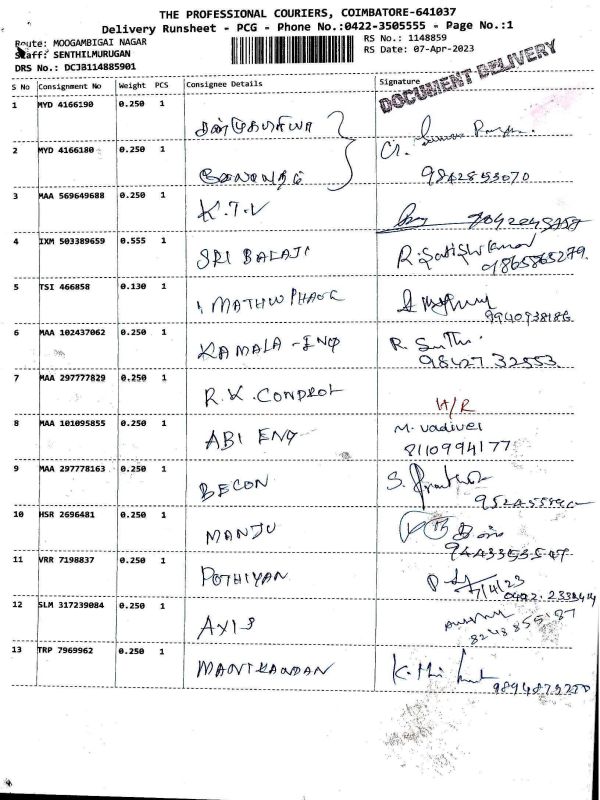 THE PROFESSIONAL COURIERS, COIMBATORE-641037
Delivery Runsheet - PCG - Phone No.:0422-3505555 - Page No.:1
Route: MOOGAMBIGAI NAGAR RS No.: 1148859
Staff: SENTHILMURUGAN RS Date: 07-Apr-2023
DRS No.: DCJB114885901
DOCUMENT DELIVERY
S No Consignment No Weight PCS Consignee Details Signature
1 MYD 4166190 0.250 1
2 MYD 4166180 0.250 1 9842853070
3 MAA 569649688 0.250 1 K.T.V
4 IXM 503389659 0.555 1 SRI BALAJI R. Satishkumar
9865865279.
5 TSI 466858 0.130 1
6 MAA 102437062 0.250 1 KAMALA-ENG R.
98427 32553
7 MAA 297777829 0.250 1 R.K. CONDROL H/R
8 MAA 101095855 0.250 1 ABI ENG M. Vadivel
8110994177
9 MAA 297778163 0.250 1 BECON S.
10 HSR 2696481 0.250 1 MANJU
11 VRR 7198837 0.250 1 POTHIYAN 7/4/23
12 SLM 317239084 0.250 1 AXIS
13 TRP 7969962 0.250 1 MANIKANDAN